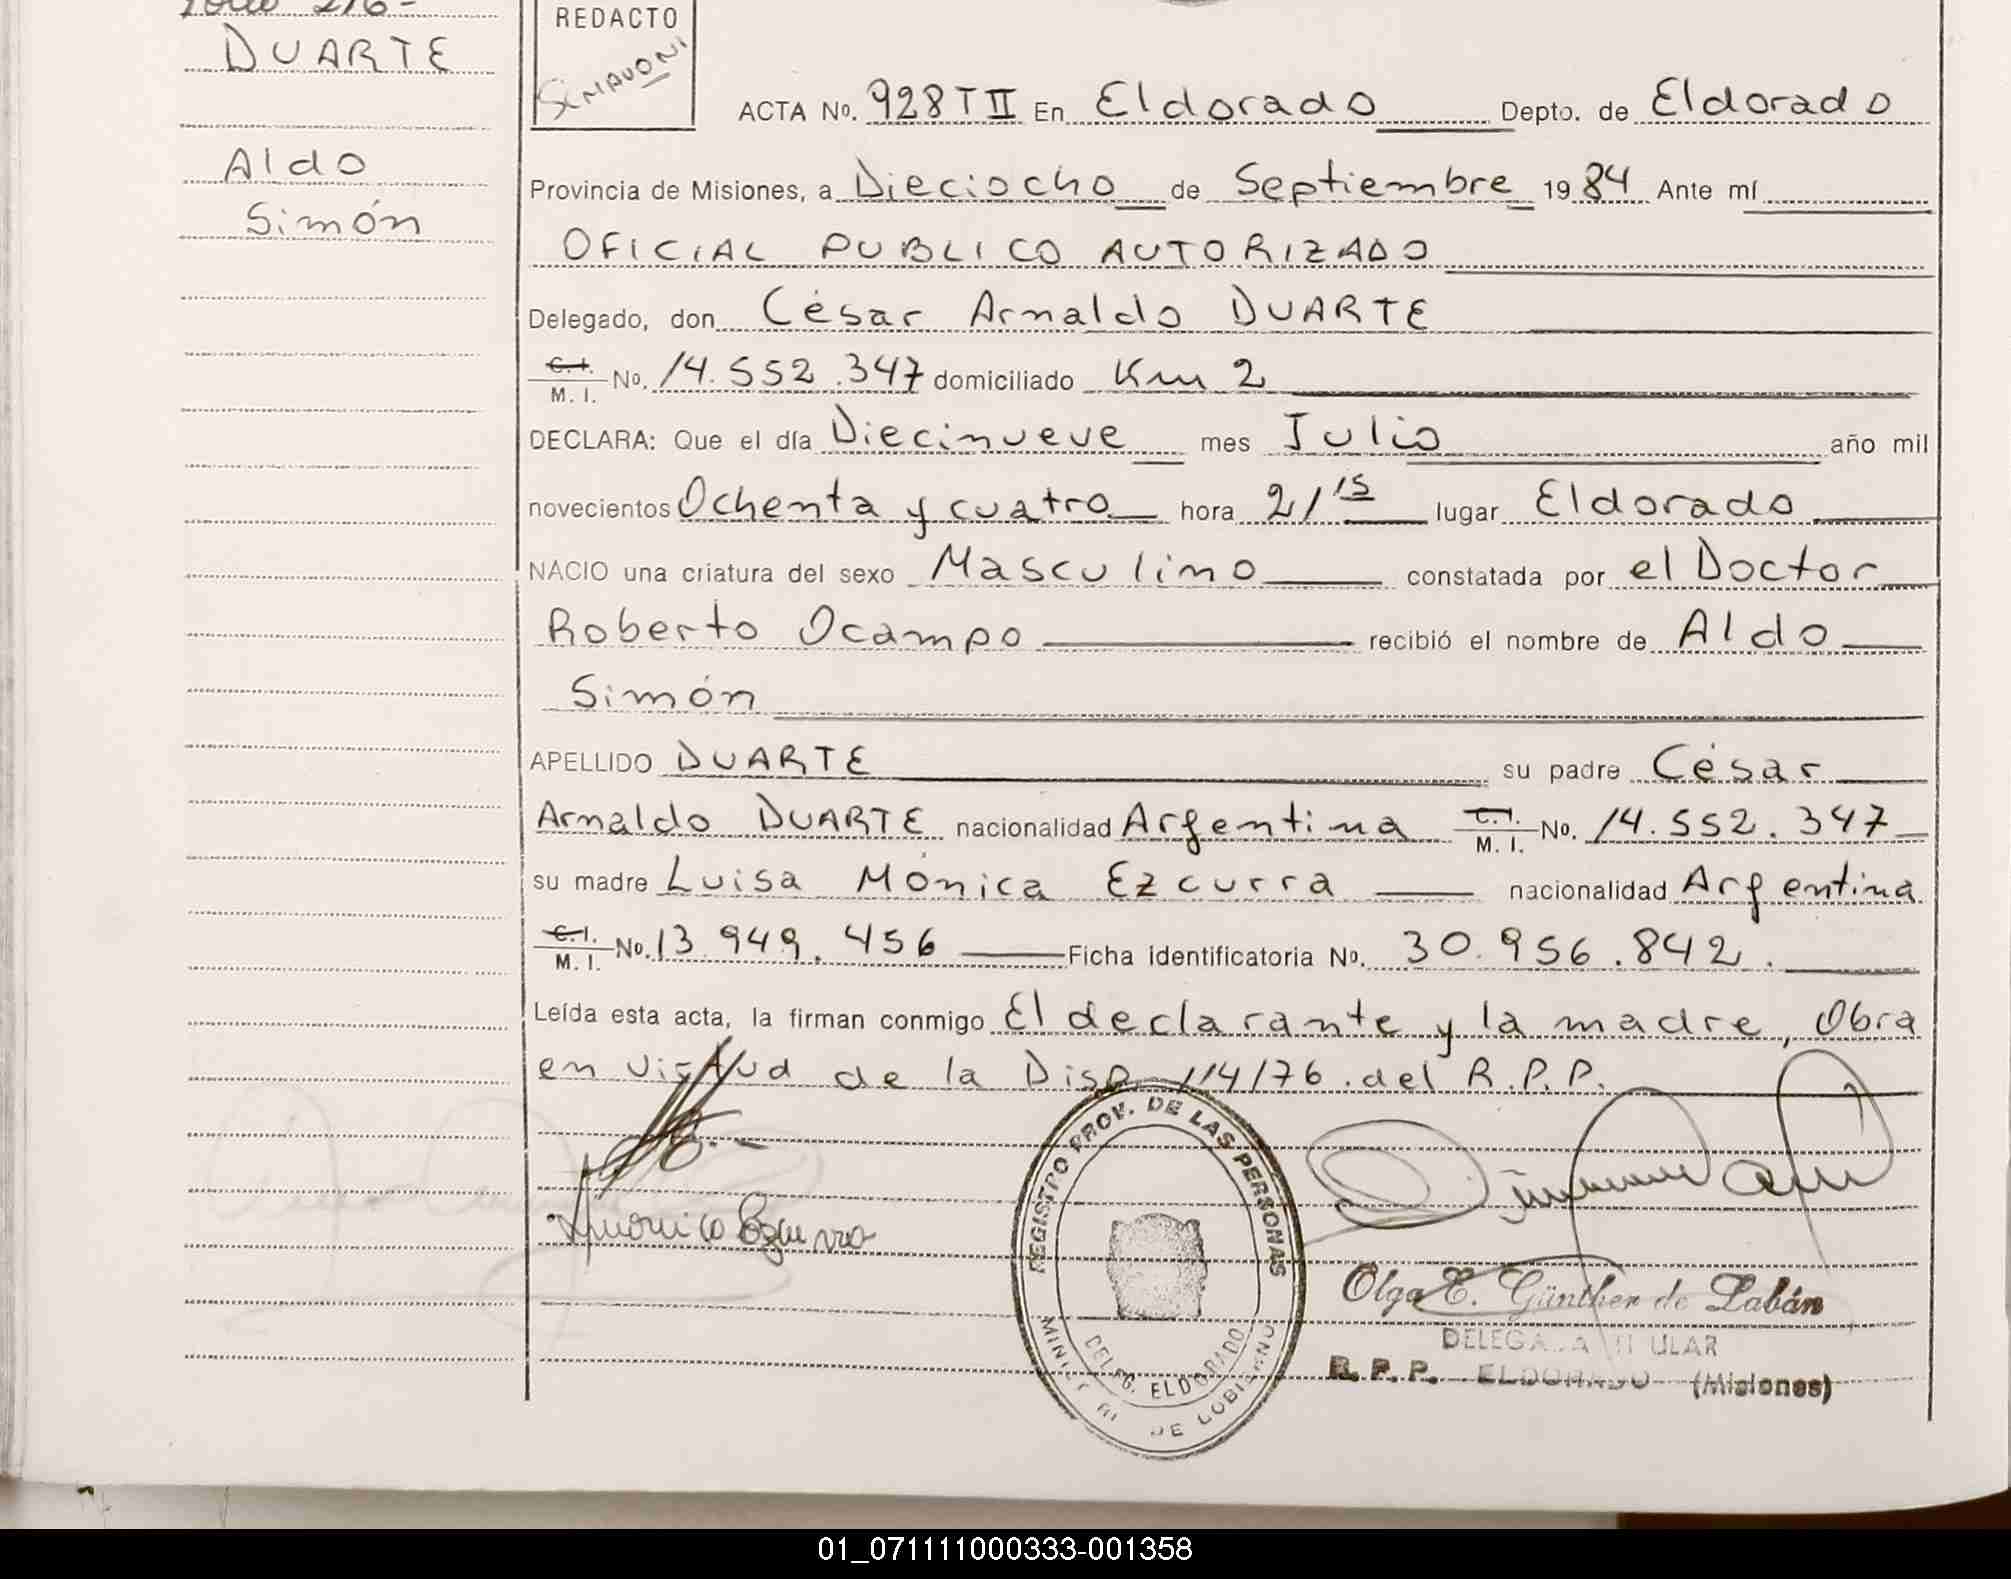 Folio 276-
DUARTE
Aldo
Simón
REDACTO
SIMAVONI
ACTA No. 928 T II En Eldorado Depto. de Eldorado
Provincia de Misiones, a Dieciocho de Septiembre 1984 Ante mí
OFICIAL PUBLICO AUTORIZADO
Delegado, don César Arnaldo DUARTE
C.I. / M.I. No. 14.552.347 domiciliado Km 2
DECLARA: Que el día Diecinueve mes Julio año mil
novecientos Ochenta y cuatro hora 21 15 lugar Eldorado
NACIO una criatura del sexo Masculino constatada por el Doctor
Roberto Ocampo recibió el nombre de Aldo
Simón
APELLIDO DUARTE su padre César
Arnaldo DUARTE nacionalidad Argentina C.I. / M.I. No. 14.552.347
su madre Luisa Mónica Ezcurra nacionalidad Argentina
C.I. / M.I. No. 13.949.456 Ficha identificatoria No. 30.956.842.
Leída esta acta, la firman conmigo El declarante y la madre, Obra
en virtud de la Disp. 114/76 del R.P.P.
REGISTRO PROV. DE LAS PERSONAS
MINISTERIO DE GOBIERNO
DELEG. ELDORADO
Olga E. Günther de Labán
DELEGADA TITULAR
R.P.P. ELDORADO (Misiones)
01_071111000333-001358